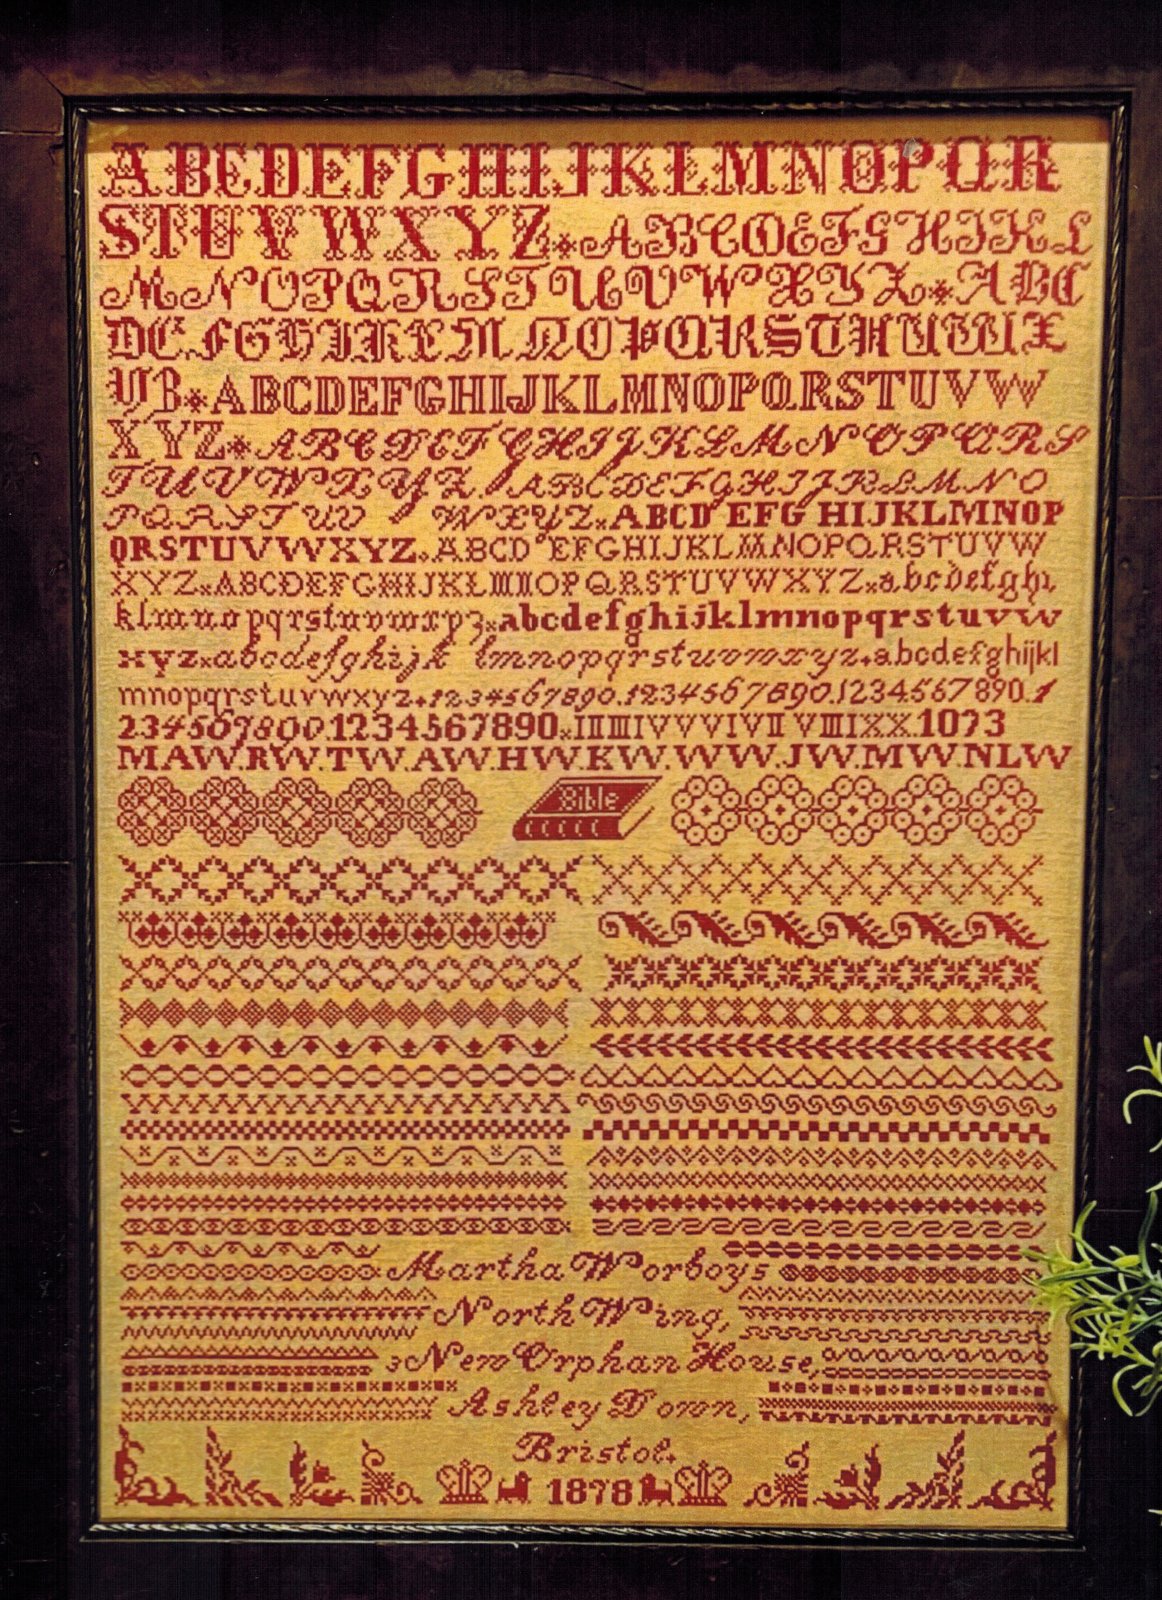 ABCDEFGHIJKLMNOPQR
STUVWXYZ*ABCDEFGHIKL
MNOPQRSTUVWXYZ*ABC
DEFGHIKLMNOPQRSTHUWX
YZ*ABCDEFGHIJKLMNOPQRSTUVW
XYZ*ABCDEFGHIJKLMNOPQRS
TUVWXYZ.ABCDEFGHIJKLMNO
PQRSTUV WXYZ*ABCD EFGHIJKLMNOP
QRSTUVWXYZ*ABCD EFGHIJKLMNOPQRSTUVW
XYZ*ABCDEFGHIJKLMNOPQRSTUVWXYZ*abcdefghi
klmnopqrstuvwxyz*abcdefghijklmnopqrstuvw
xyz*abcdefghijk lmnopqrstuvwxyz+abcdefghijkl
mnopqrstuvwxyz+1234567890.1234567890.1234567890.1
234567890.1234567890*IIIIIIIVVVIVIIVIIIIXX.1073
MAW.RW.TW.AW.HW.KW.WW.JW.MW.NLW
Bible
Martha Worboys
North Wing,
3 New Orphan House,
Ashley Down,
Bristol.
1878